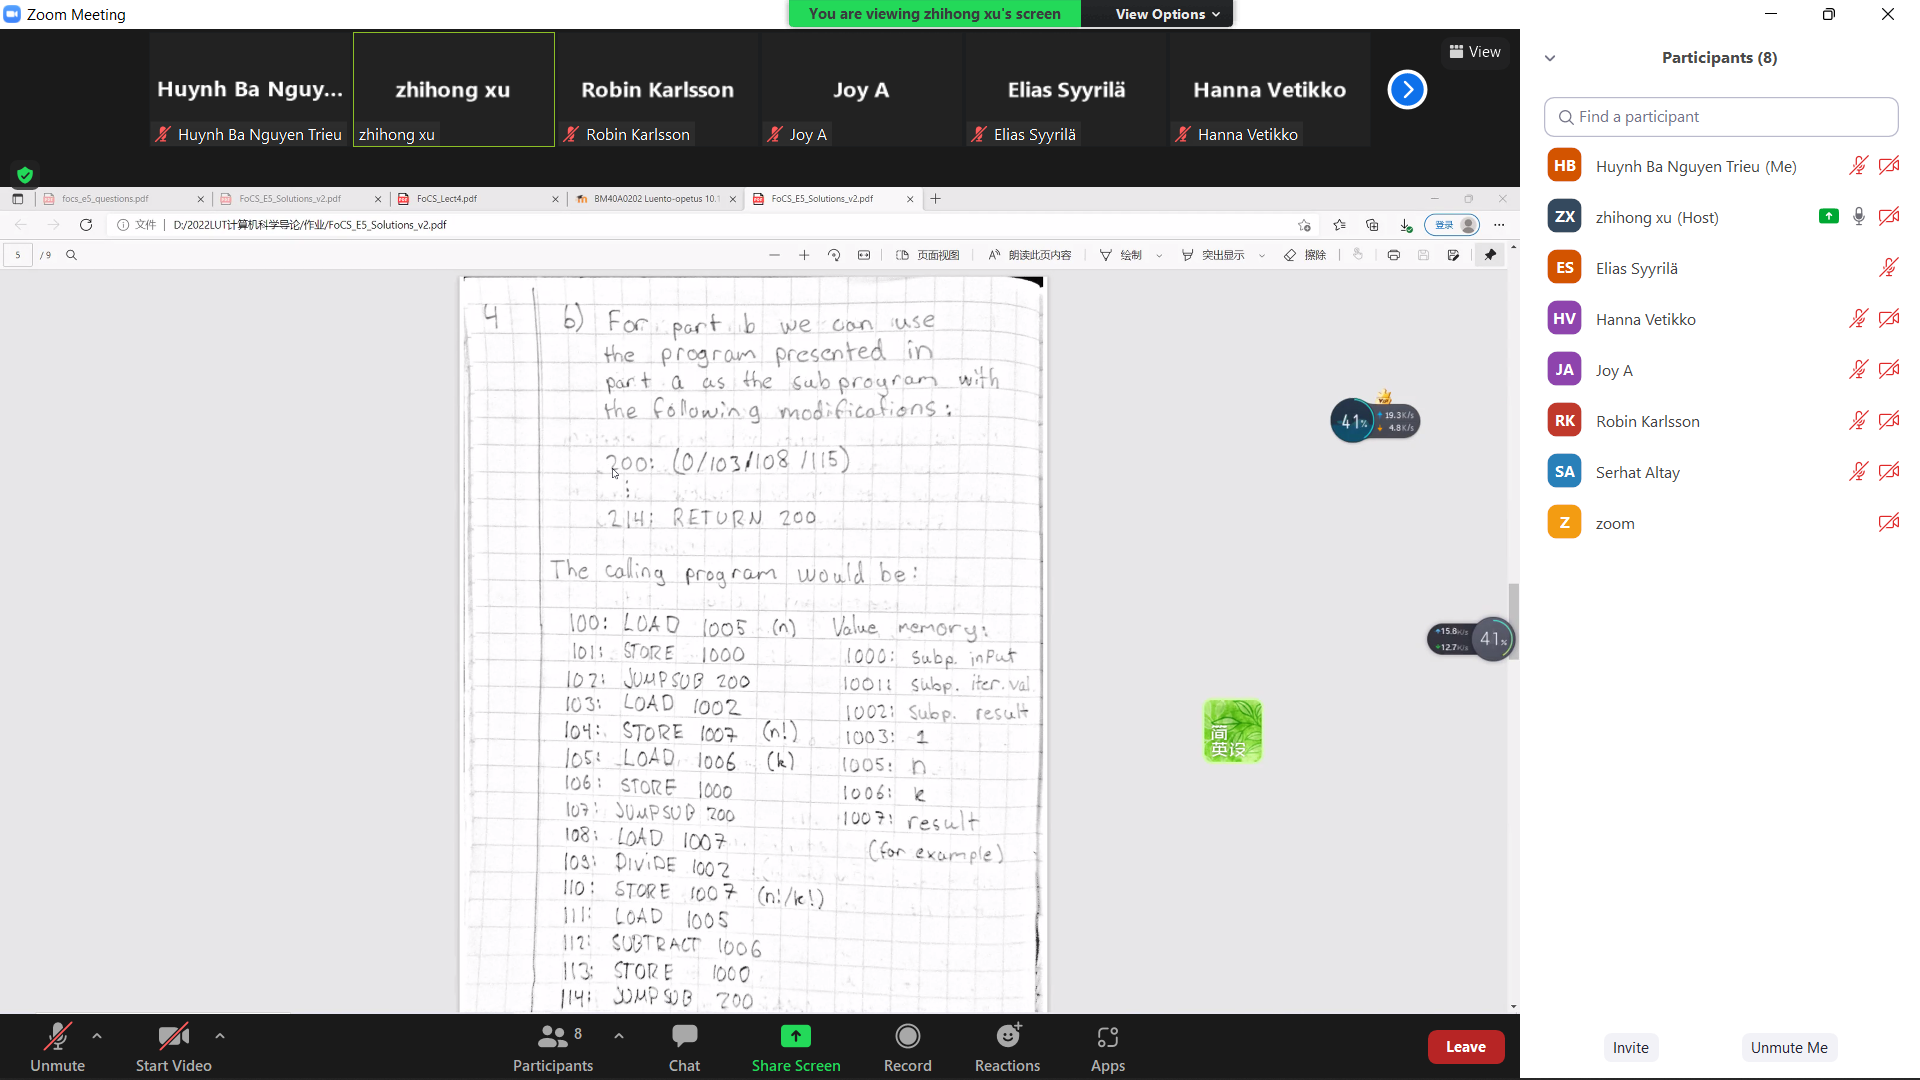 Zoom Meeting
You are viewing zhihong xu's screen
View Options
View
Huynh Ba Nguy...
zhihong xu
Robin Karlsson
Joy A
Elias Syyrilä
Hanna Vetikko
Huynh Ba Nguyen Trieu
zhihong xu
Robin Karlsson
Joy A
Elias Syyrilä
Hanna Vetikko
focs_e5_questions.pdf
FoCS_E5_Solutions_v2.pdf
FoCS_Lect4.pdf
BM40A0202 Luento-opetus 10.1
FoCS_E5_Solutions_v2.pdf
文件
D:/2022LUT计算机科学导论/作业/FoCS_E5_Solutions_v2.pdf
登录
5 / 9
页面视图
朗读此页内容
绘制
突出显示
擦除
4 b) For part b we can use
the program presented in
part a as the subprogram with
the following modifications:
200: (0/103/108/115)
⋮
214: RETURN 200
The calling program would be:
100: LOAD 1005 (n)
101: STORE 1000
102: JUMPSUB 200
103: LOAD 1002
104: STORE 1007 (n!)
105: LOAD 1006 (k)
106: STORE 1000
107: JUMPSUB 200
108: LOAD 1007
109: DIVIDE 1002
110: STORE 1007 (n!/k!)
111: LOAD 1005
112: SUBTRACT 1006
113: STORE 1000
114: JUMPSUB 200
Value memory:
1000: subp. input
1001: subp. iter.val
1002: subp. result
1003: 1
1005: n
1006: k
1007: result
(for example)
41%
19.3K/s
4.8K/s
15.8K/s
12.7K/s
41%
简
英设
Participants (8)
Find a participant
HB Huynh Ba Nguyen Trieu (Me)
ZX zhihong xu (Host)
ES Elias Syyrilä
HV Hanna Vetikko
JA Joy A
RK Robin Karlsson
SA Serhat Altay
Z zoom
Invite
Unmute Me
Unmute
Start Video
8
Participants
Chat
Share Screen
Record
Reactions
Apps
Leave